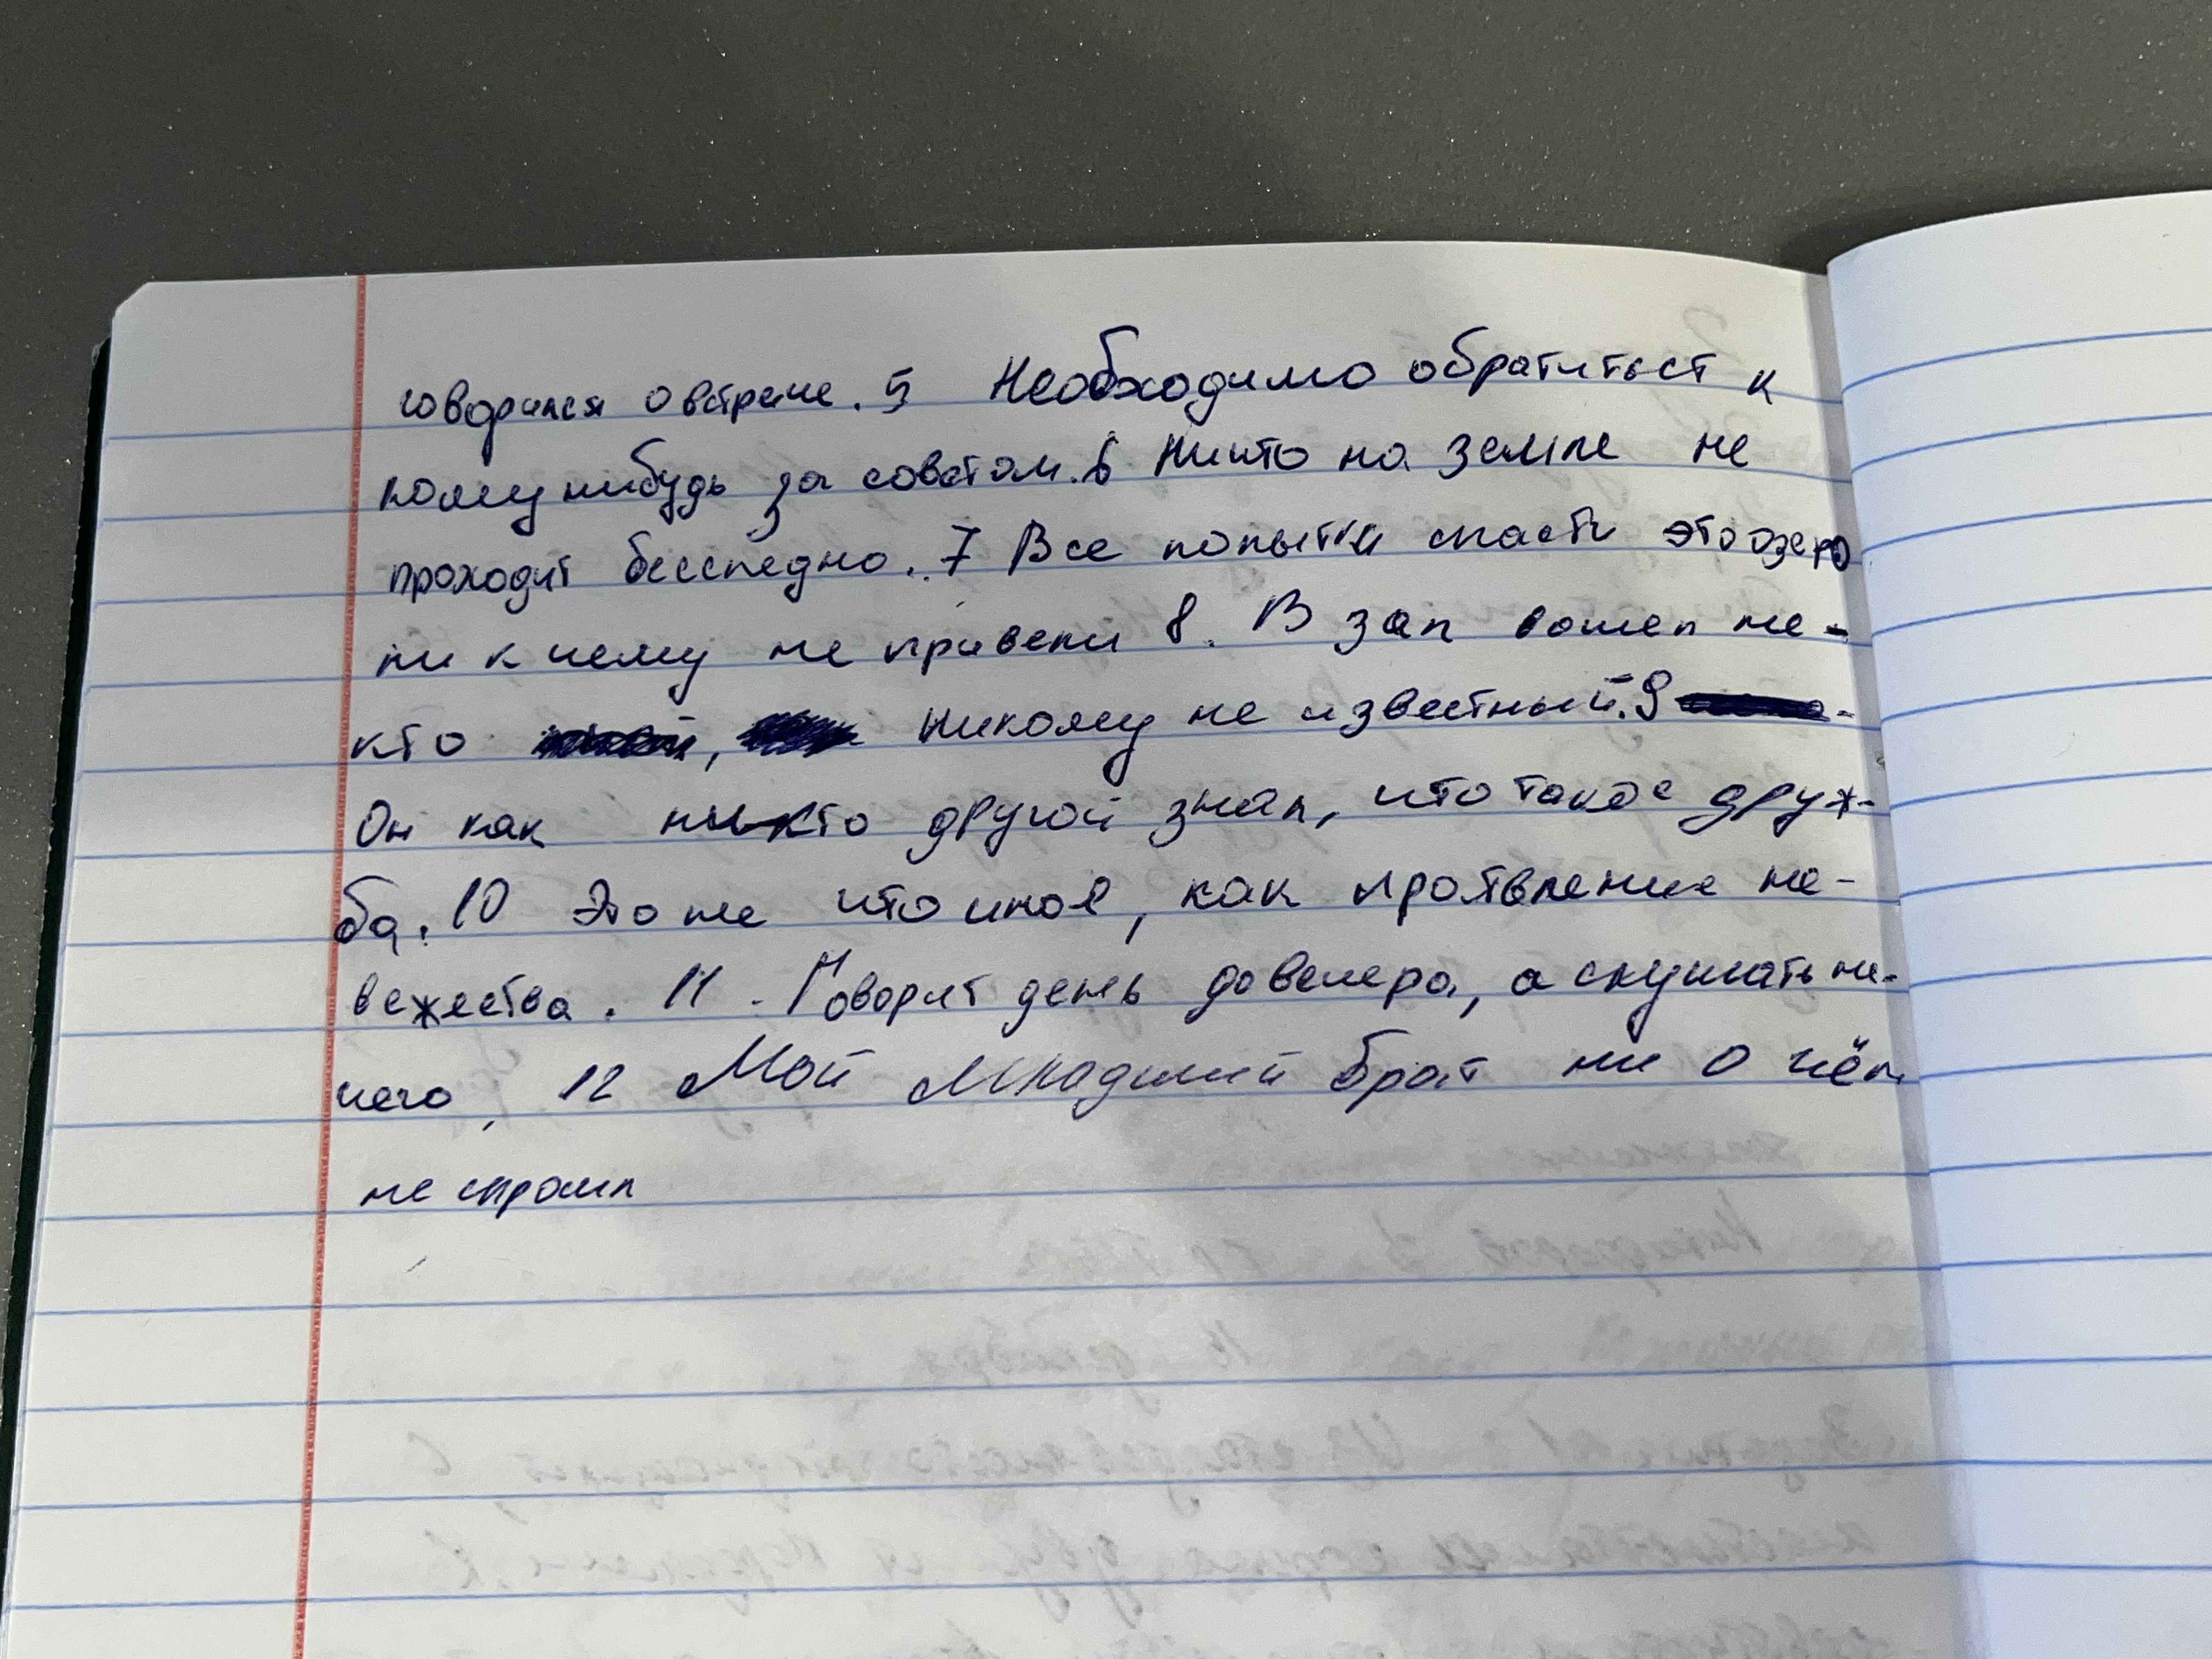 говорился о встрече. 5 Необходимо обратиться к
кому нибудь за советом. 6 Ничто на земле не
проходит бесследно. 7 Все попытки спасти это озеро
ни к чему не привели 8. В зал вошел не-
кто , никому не известный. 9
Он как никто другой знал, что такое друж-
ба. 10 Это не что иное, как проявление не-
вежества. 11. Говорит день до вечера, а слушать не-
чего, 12 Мой младший брат ни о чём
не спрошл